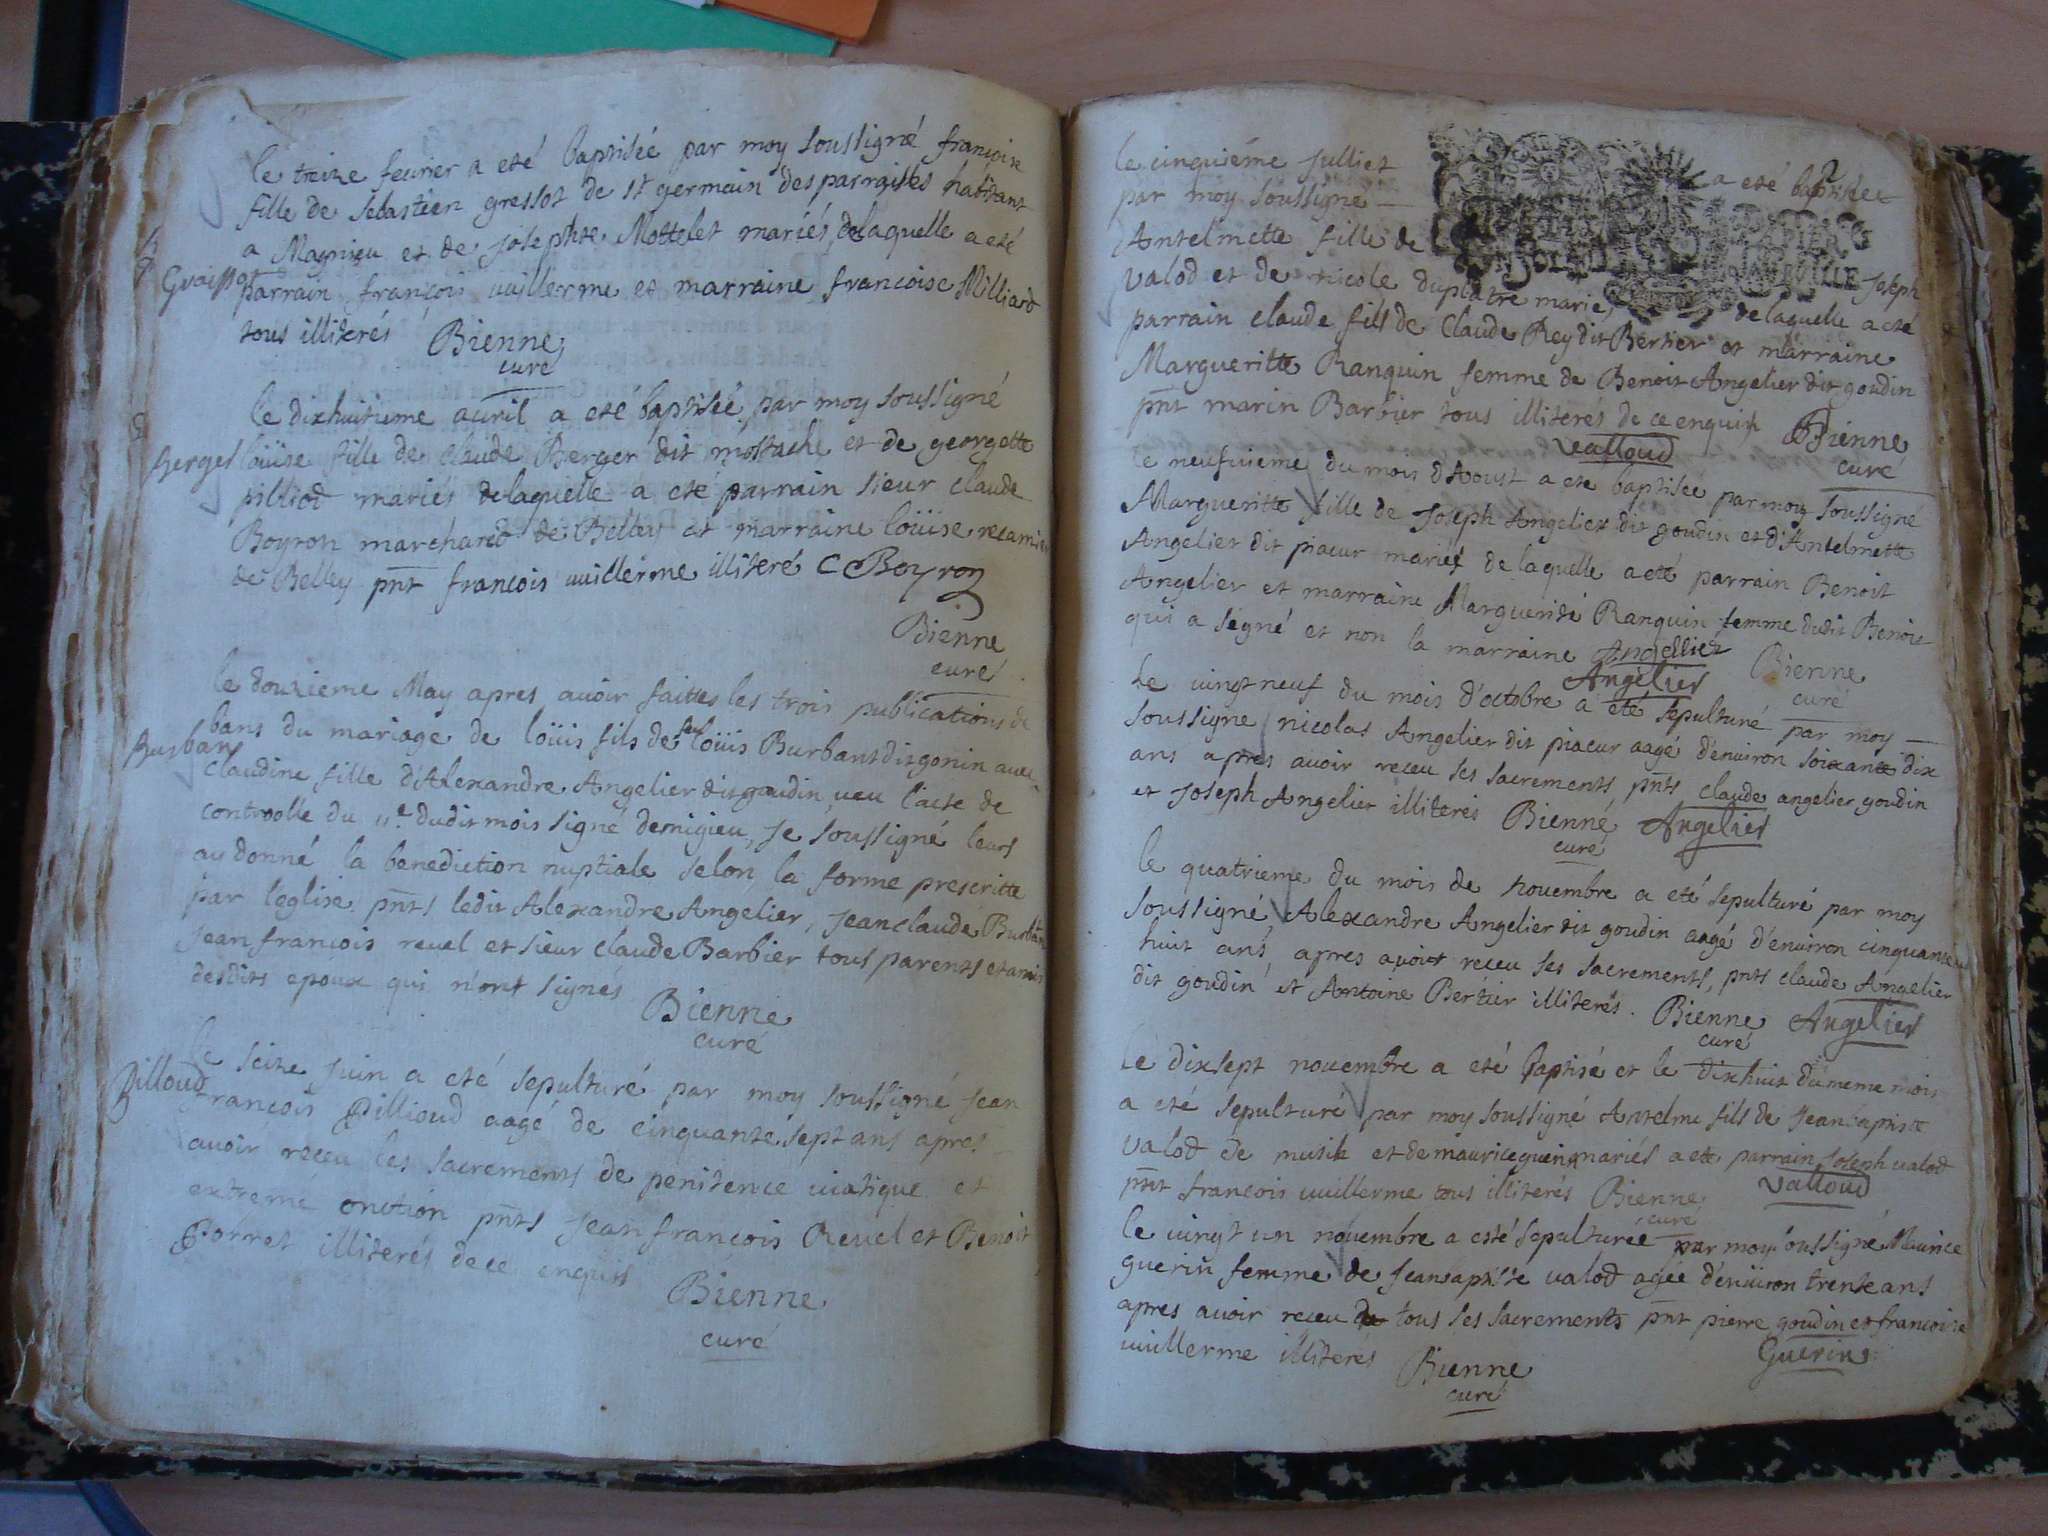 le treize fevrier a eté baptisée par moy soussigné françoise
fille de sebastien gressot de st germain des parroisses habitant
a Magnieu et de josephte Mottelet mariés, de laquelle a eté
parrain françois vuillerme et marraine francoise Milliard
tous illiterés Bienne
curé
le dixhuitieme avril a eté baptisée par moy soussigné
Berger
loüise fille de claude Berger dit mostache et de georgette
pilliod mariés de laquelle a eté parrain sieur claude
Boyron marchand de Belley et marraine loüise recamier
de Belley pnt francois vuillerme illiteré C Boyron
Bienne
curé
le douzieme May apres avoir faittes les trois publications de
bans du mariage de loüis fils de feu loüis Burbant dit gonin avec
Burbant
claudine fille d'Alexandre Angelier dit goudin, veu l'acte de
controolle du 11e dudit mois signé demigieu, je soussigné leurs
ay donné la benediction nuptiale selon la forme prescritte
par leglise pnts ledit Alexandre Angelier, jean claude Burbant
jean francois revel et sieur claude Barbier tous parents et amis
desdits epoux qui n'ont signés Bienne
curé
le seize juin a eté sepulturé par moy soussigné jean
Pilloud
francois Pillioud aagé de cinquante sept ans apres
avoir receu les sacrements de penitence viatique et
extreme onction pnts jean francois Revel et Benoit
Porret illiterés de ce enquis
Bienne
curé
le cinquiéme julliet a eté baptisée
par moy soussigné
Antelmette fille de joseph
valod et de nicole duplatre mariés de laquelle a eté
parrain claude fils de Claude Rey dit Bertier et marraine
Margueritte Ranquin femme de Benoit Angelier dit goudin
pnt marin Barbier tous illiterés de ce enquis Bienne
valloud curé
le neufvieme du mois d'Aoust a eté baptisée par moy soussigné
Margueritte fille de joseph Angelier dit goudin et d'Antelmette
Angelier dit piacur mariés de laquelle a eté parrain Benoit
Angelier et marraine Margueritte Ranquin femme dudit Benoit
qui a signé et non la marraine Angellier Bienne
Angelier curé
Le vingt neuf du mois d'octobre a été sepulturé par moy
soussigné nicolas Angelier dit piacur aagé d'environ soixante dix
ans apres avoir receu ses sacrements pnts claude angelier goudin
et joseph Angelier illiterés Bienne Angelier
curé
le quatrieme du mois de novembre a eté sepulturé par moy
soussigné Alexandre Angelier dit goudin aagé d'environ cinquante
huit ans apres avoir receu ses sacrements, pnts claude Angelier
dit goudin et Antoine Bertier illiterés. Bienne Angelier
curé
Le dixsept novembre a eté baptisé et le dixhuit du meme mois
a eté sepulturé par moy soussigné Antelme fils de jean baptiste
valod de musin et de maurice guerin mariés a eté parrain joseph valod
pnt francois vuillerme tous illiterés Bienne valloud
curé
le vingt un novembre a esté sepulturée par moy soussigné Maurice
guerin femme de jean baptiste valod agée d'environ trente ans
apres avoir receu tous ses sacrements pnt pierre goudin et francoise
vuillerme illiterés Bienne Guerin
curé